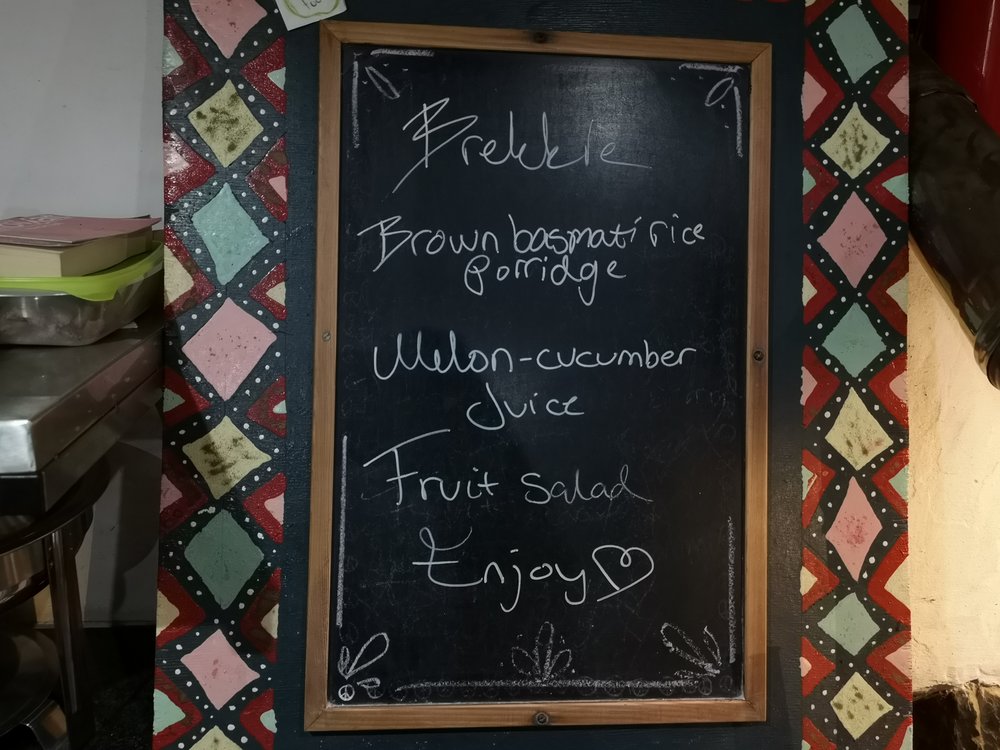 Brekkie
Brown basmati rice
porridge
Melon-cucumber
Juice
Fruit salad
Enjoy♡